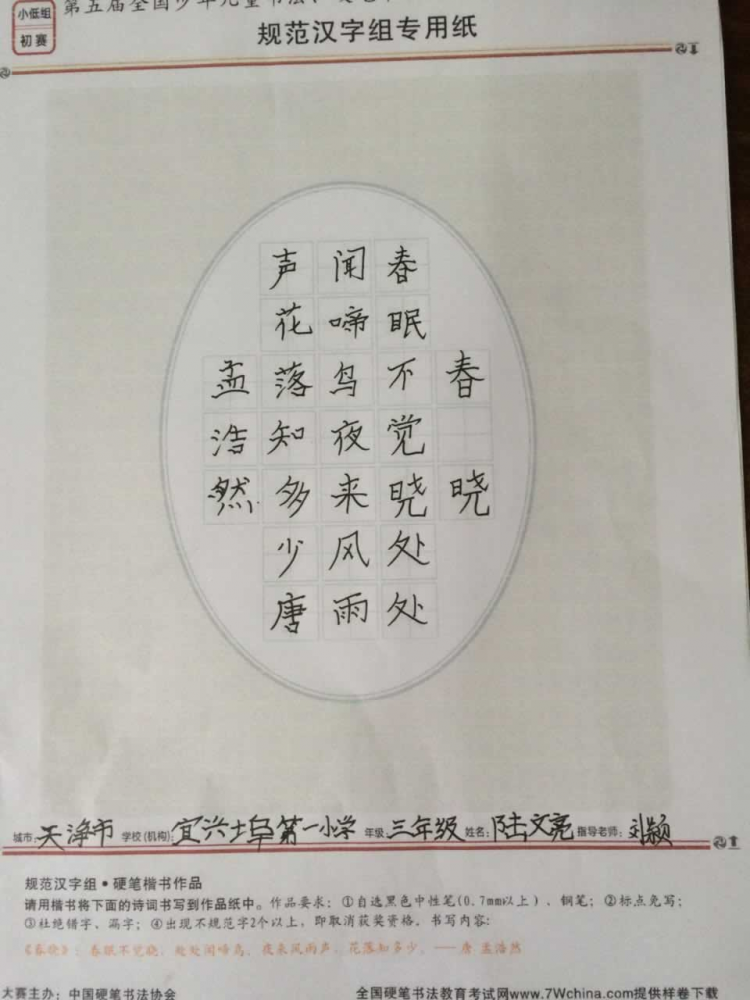 小低组
初赛
第五届全国少年儿童书法、
规范汉字组专用纸
春晓
春眠不觉晓处处
闻啼鸟夜来风雨
声花落知多少唐
孟浩然
城市:天津市 学校(机构):宜兴埠第一小学 年级:三年级 姓名:陆文亮 指导老师:刘颖
规范汉字组•硬笔楷书作品
请用楷书将下面的诗词书写到作品纸中。作品要求：①自选黑色中性笔(0.7mm以上)、钢笔；②标点免写；
③杜绝错字、漏字；④出现不规范字2个以上，即取消获奖资格。书写内容：
《春晓》：春眠不觉晓，处处闻啼鸟。夜来风雨声，花落知多少。——唐 孟浩然
大赛主办：中国硬笔书法协会 全国硬笔书法教育考试网www.7Wchina.com提供样卷下载